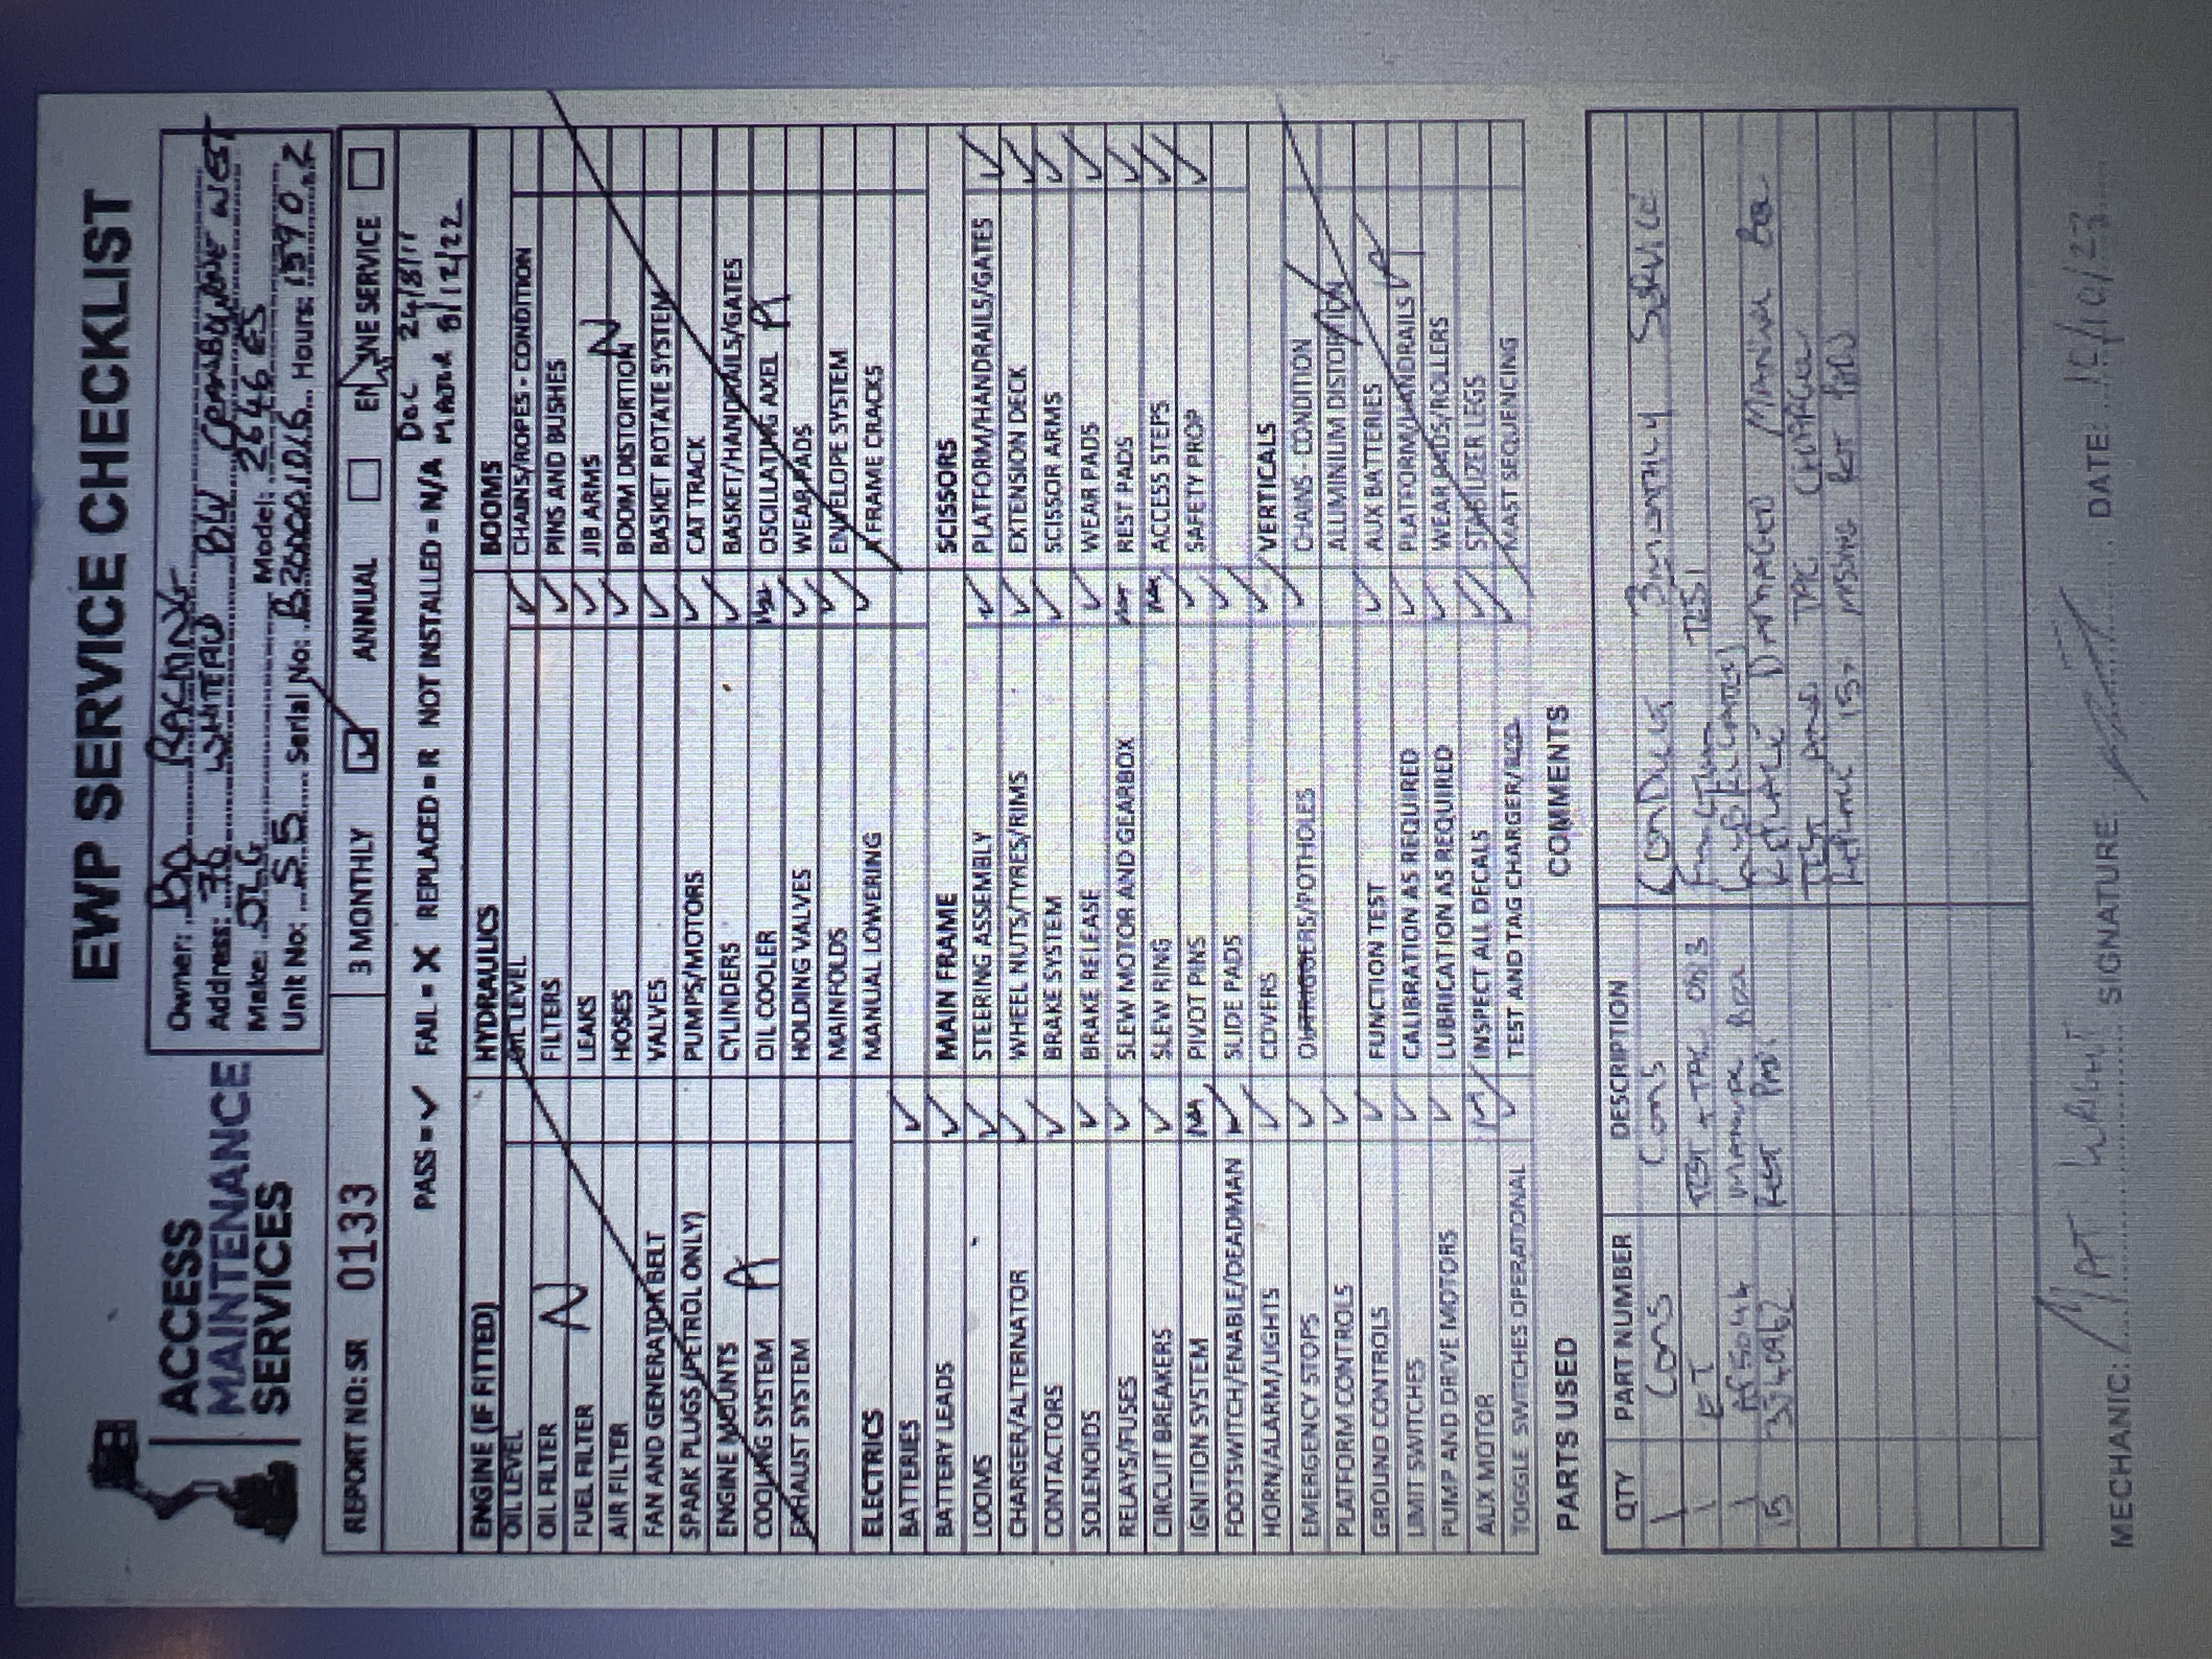 EWP SERVICE CHECKLIST
ACCESS
MAINTENANCE
SERVICES
Owner: BQ RACKING
Address: 36 WHITFIELD BLV CRANBOURNE WEST
Make: JLG Model: 2646ES
Unit No: S5 Serial No: B200001016 Hours: 1590.2
REPORT NO: SR 0133
3 MONTHLY ANNUAL ENGINE SERVICE
PASS = ✓ FAIL = X REPLACED = R NOT INSTALLED = N/A
DOC 24/8/11
MAJOR 8/12/22
ENGINE (IF FITTED)
OIL LEVEL
OIL FILTER
FUEL FILTER
AIR FILTER
FAN AND GENERATOR BELT
SPARK PLUGS (PETROL ONLY)
ENGINE MOUNTS
COOLING SYSTEM
EXHAUST SYSTEM
N
A
ELECTRICS
BATTERIES ✓
BATTERY LEADS ✓
LOOMS ✓
CHARGER/ALTERNATOR ✓
CONTACTORS ✓
SOLENOIDS ✓
RELAYS/FUSES ✓
CIRCUIT BREAKERS ✓
IGNITION SYSTEM NA
FOOTSWITCH/ENABLE/DEADMAN ✓
HORN/ALARM/LIGHTS ✓
EMERGENCY STOPS ✓
PLATFORM CONTROLS ✓
GROUND CONTROLS ✓
LIMIT SWITCHES ✓
PUMP AND DRIVE MOTORS ✓
AUX MOTOR ✓
TOGGLE SWITCHES OPERATIONAL ✓
HYDRAULICS
OIL LEVEL ✓
FILTERS ✓
LEAKS ✓
HOSES ✓
VALVES ✓
PUMPS/MOTORS ✓
CYLINDERS ✓
OIL COOLER NA
HOLDING VALVES ✓
MAINFOLDS ✓
MANUAL LOWERING ✓
MAIN FRAME
STEERING ASSEMBLY ✓
WHEEL NUTS/TYRES/RIMS ✓
BRAKE SYSTEM ✓
BRAKE RELEASE ✓
SLEW MOTOR AND GEARBOX NA
SLEW RING NA
PIVOT PINS ✓
SLIDE PADS ✓
COVERS ✓
OUTRIGGERS/POTHOLES ✓
FUNCTION TEST ✓
CALIBRATION AS REQUIRED ✓
LUBRICATION AS REQUIRED ✓
INSPECT ALL DECALS ✓
TEST AND TAG CHARGER/RCD ✓
BOOMS
CHAINS/ROPES - CONDITION
PINS AND BUSHES
JIB ARMS
BOOM DISTORTION
BASKET ROTATE SYSTEM
CAT TRACK
BASKET/HANDRAILS/GATES
OSCILLATING AXEL
WEAR PADS
ENVELOPE SYSTEM
FRAME CRACKS
N
A
SCISSORS
PLATFORM/HANDRAILS/GATES ✓
EXTENSION DECK ✓
SCISSOR ARMS ✓
WEAR PADS ✓
REST PADS ✓
ACCESS STEPS ✓
SAFETY PROP ✓
VERTICALS
CHAINS - CONDITION
ALUMINIUM DISTORTION
AUX BATTERIES
PLATFORM/HANDRAILS
WEAR PADS/ROLLERS
STABILIZER LEGS
MAST SEQUENCING
N
A
PARTS USED
COMMENTS
QTY PART NUMBER DESCRIPTION
1 CONS CONS
1 ET TEST + TAG
1 MANUAL BOX
15 3340962
CONDUCT 3 MONTHLY SERVICE
FUNCTION TEST
LUBRICATED
REPLACE DAMAGED MANUAL BOX
TEST AND TAG CHARGER
REPLACE 15 MISSING
MECHANIC: PAT WRIGHT SIGNATURE: DATE: